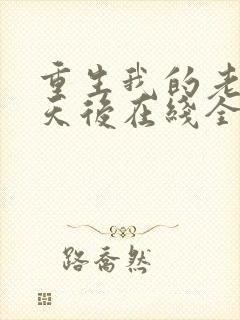 重生我的老
天後在綫全
路喬然